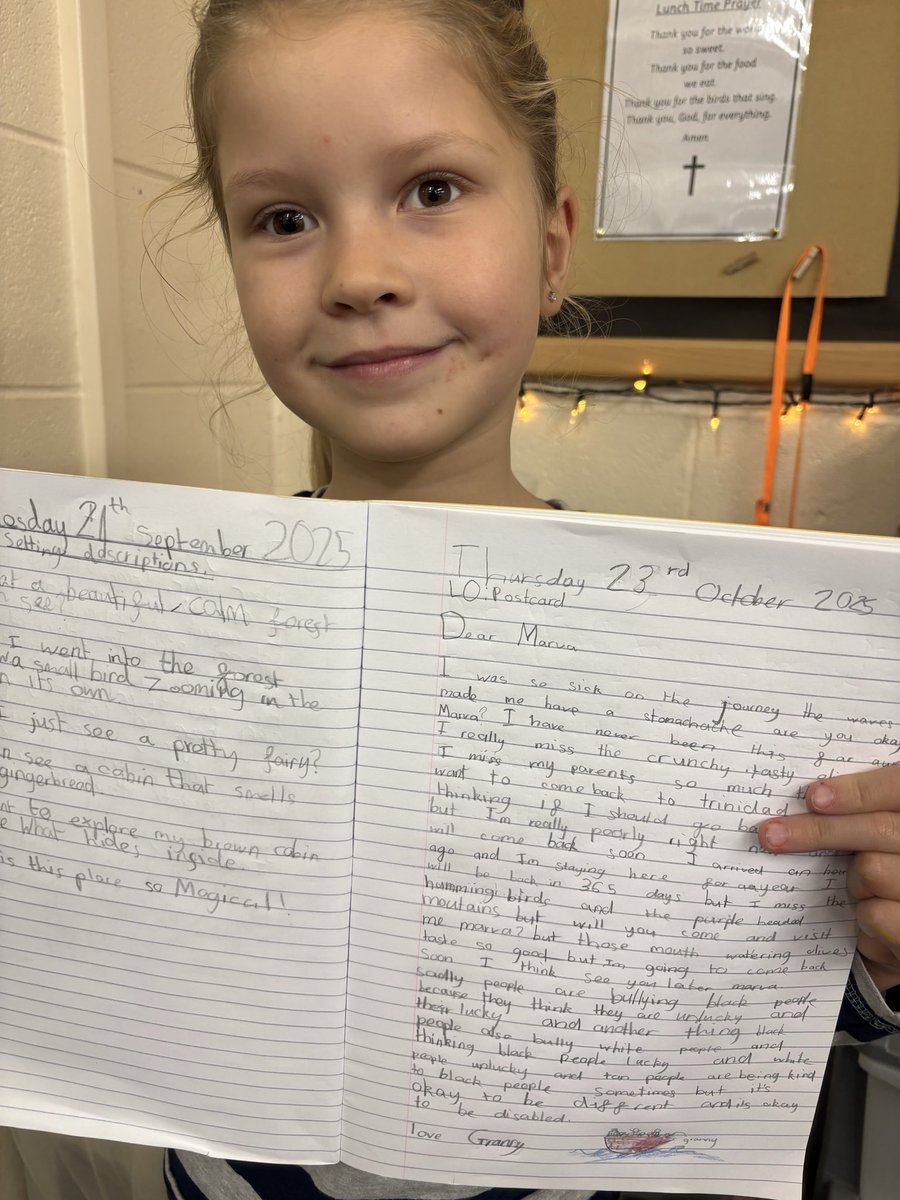 Lunch Time Prayer
Thank you for the world
so sweet.
Thank you for the food
we eat.
Thank you for the birds that sing.
Thank you, God, for everything.
Amen
September 2025
Setting ddscriptions.
at a beautiful, calm forest
see?
I went into the forest
a small bird zooming in the
its own.
I just see a pretty fairy?
see a cabin that smells
gingerbread.
to explore my brown cabin
What hides inside.
is this place so Magical!
Thursday 23rd October 2025
LO: Postcard
Dear Marva
I was so sick on the journey the waves
made me have a stomachache are you okay
Marva? I have never been this far
I really miss the crunchy, tasty
I miss my parents so much
want to come back to trinidad
thinking if I should go
but Im really poorly right
will come back soon I arrived an hour
ago and Im staying here for a year I
will be back in 365 days but I miss the
humming birds and the purple headed
moutains but will you come and visit
me marva? but those mouth watering olives
taste so good but Im going to come back
soon I think see you later marva
sadly people are bullying black people
because they think they are unlucky and
their lucky and another thing black
people also bully white people and
thinking black people lucky and white
people unlucky and tan people are being kind
to black people sometimes but it's
okay to be different and its okay
to be disabled.
love Granny
granny